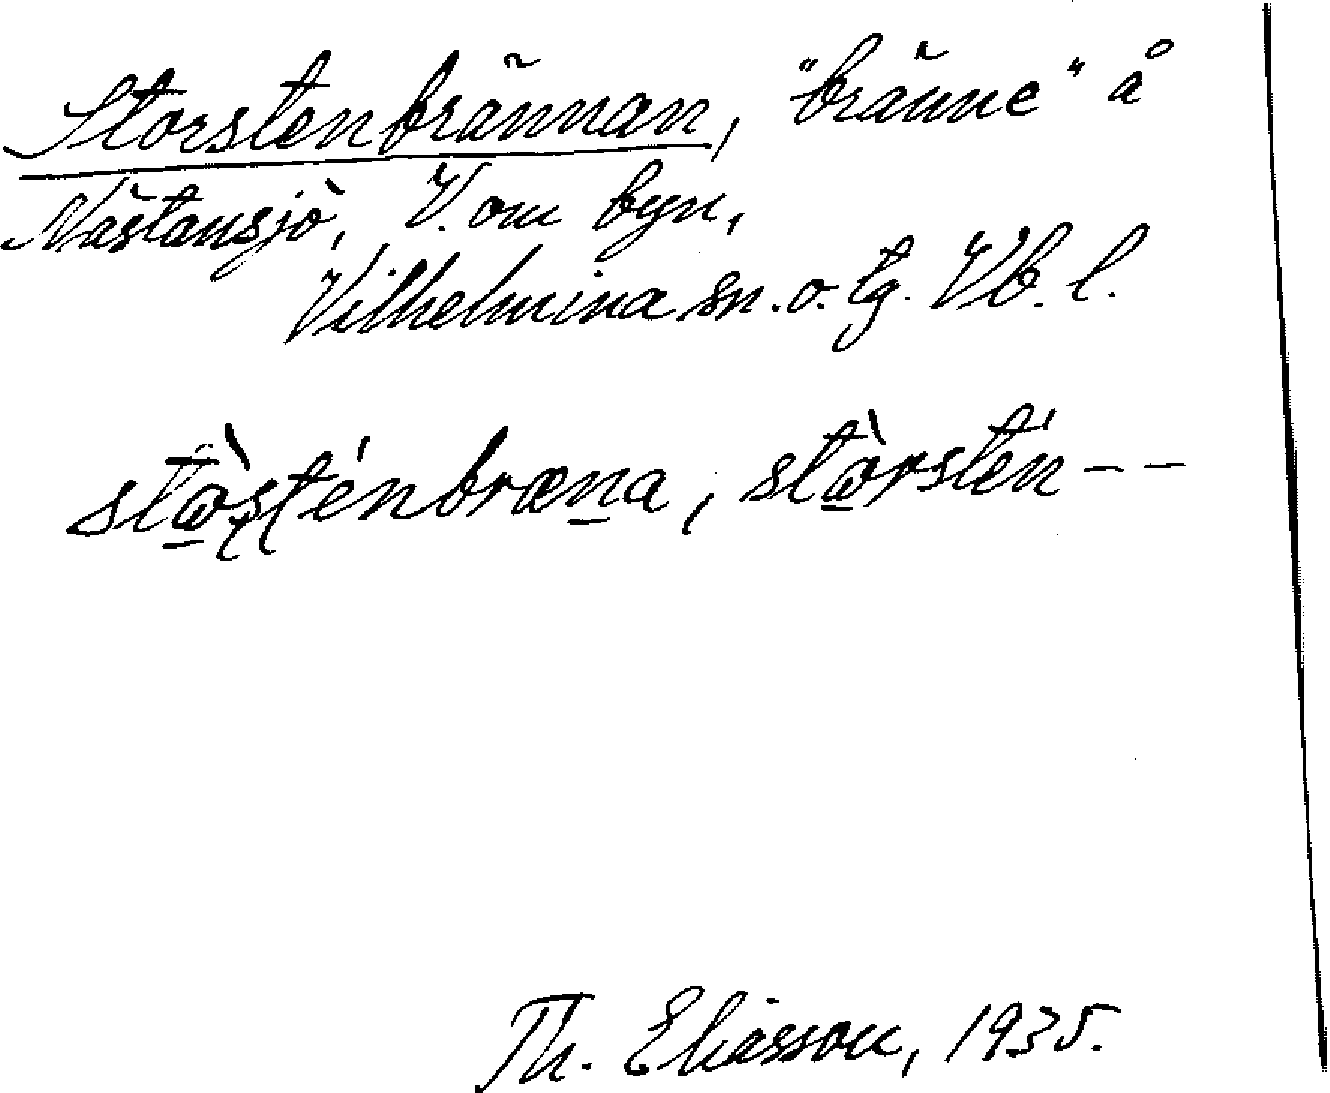 Storstenbrännan, "bränne" å
Nästansjö, V. om byn,
Vilhelmina sn. o. tg. Vb. l.
stò̱ṣténbræṉa, stò̱rstén--
Th. Eliasson, 1935.